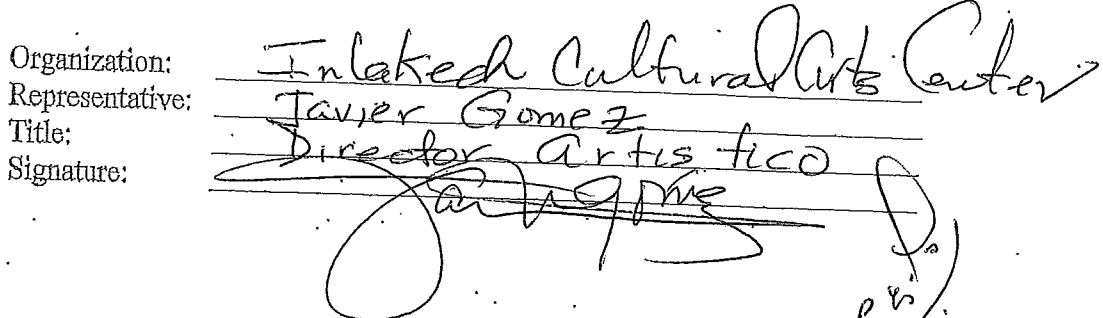 Organization: Inlakech Cultural Arts Center
Representative: Javier Gomez
Title: Director Artistico
Signature: